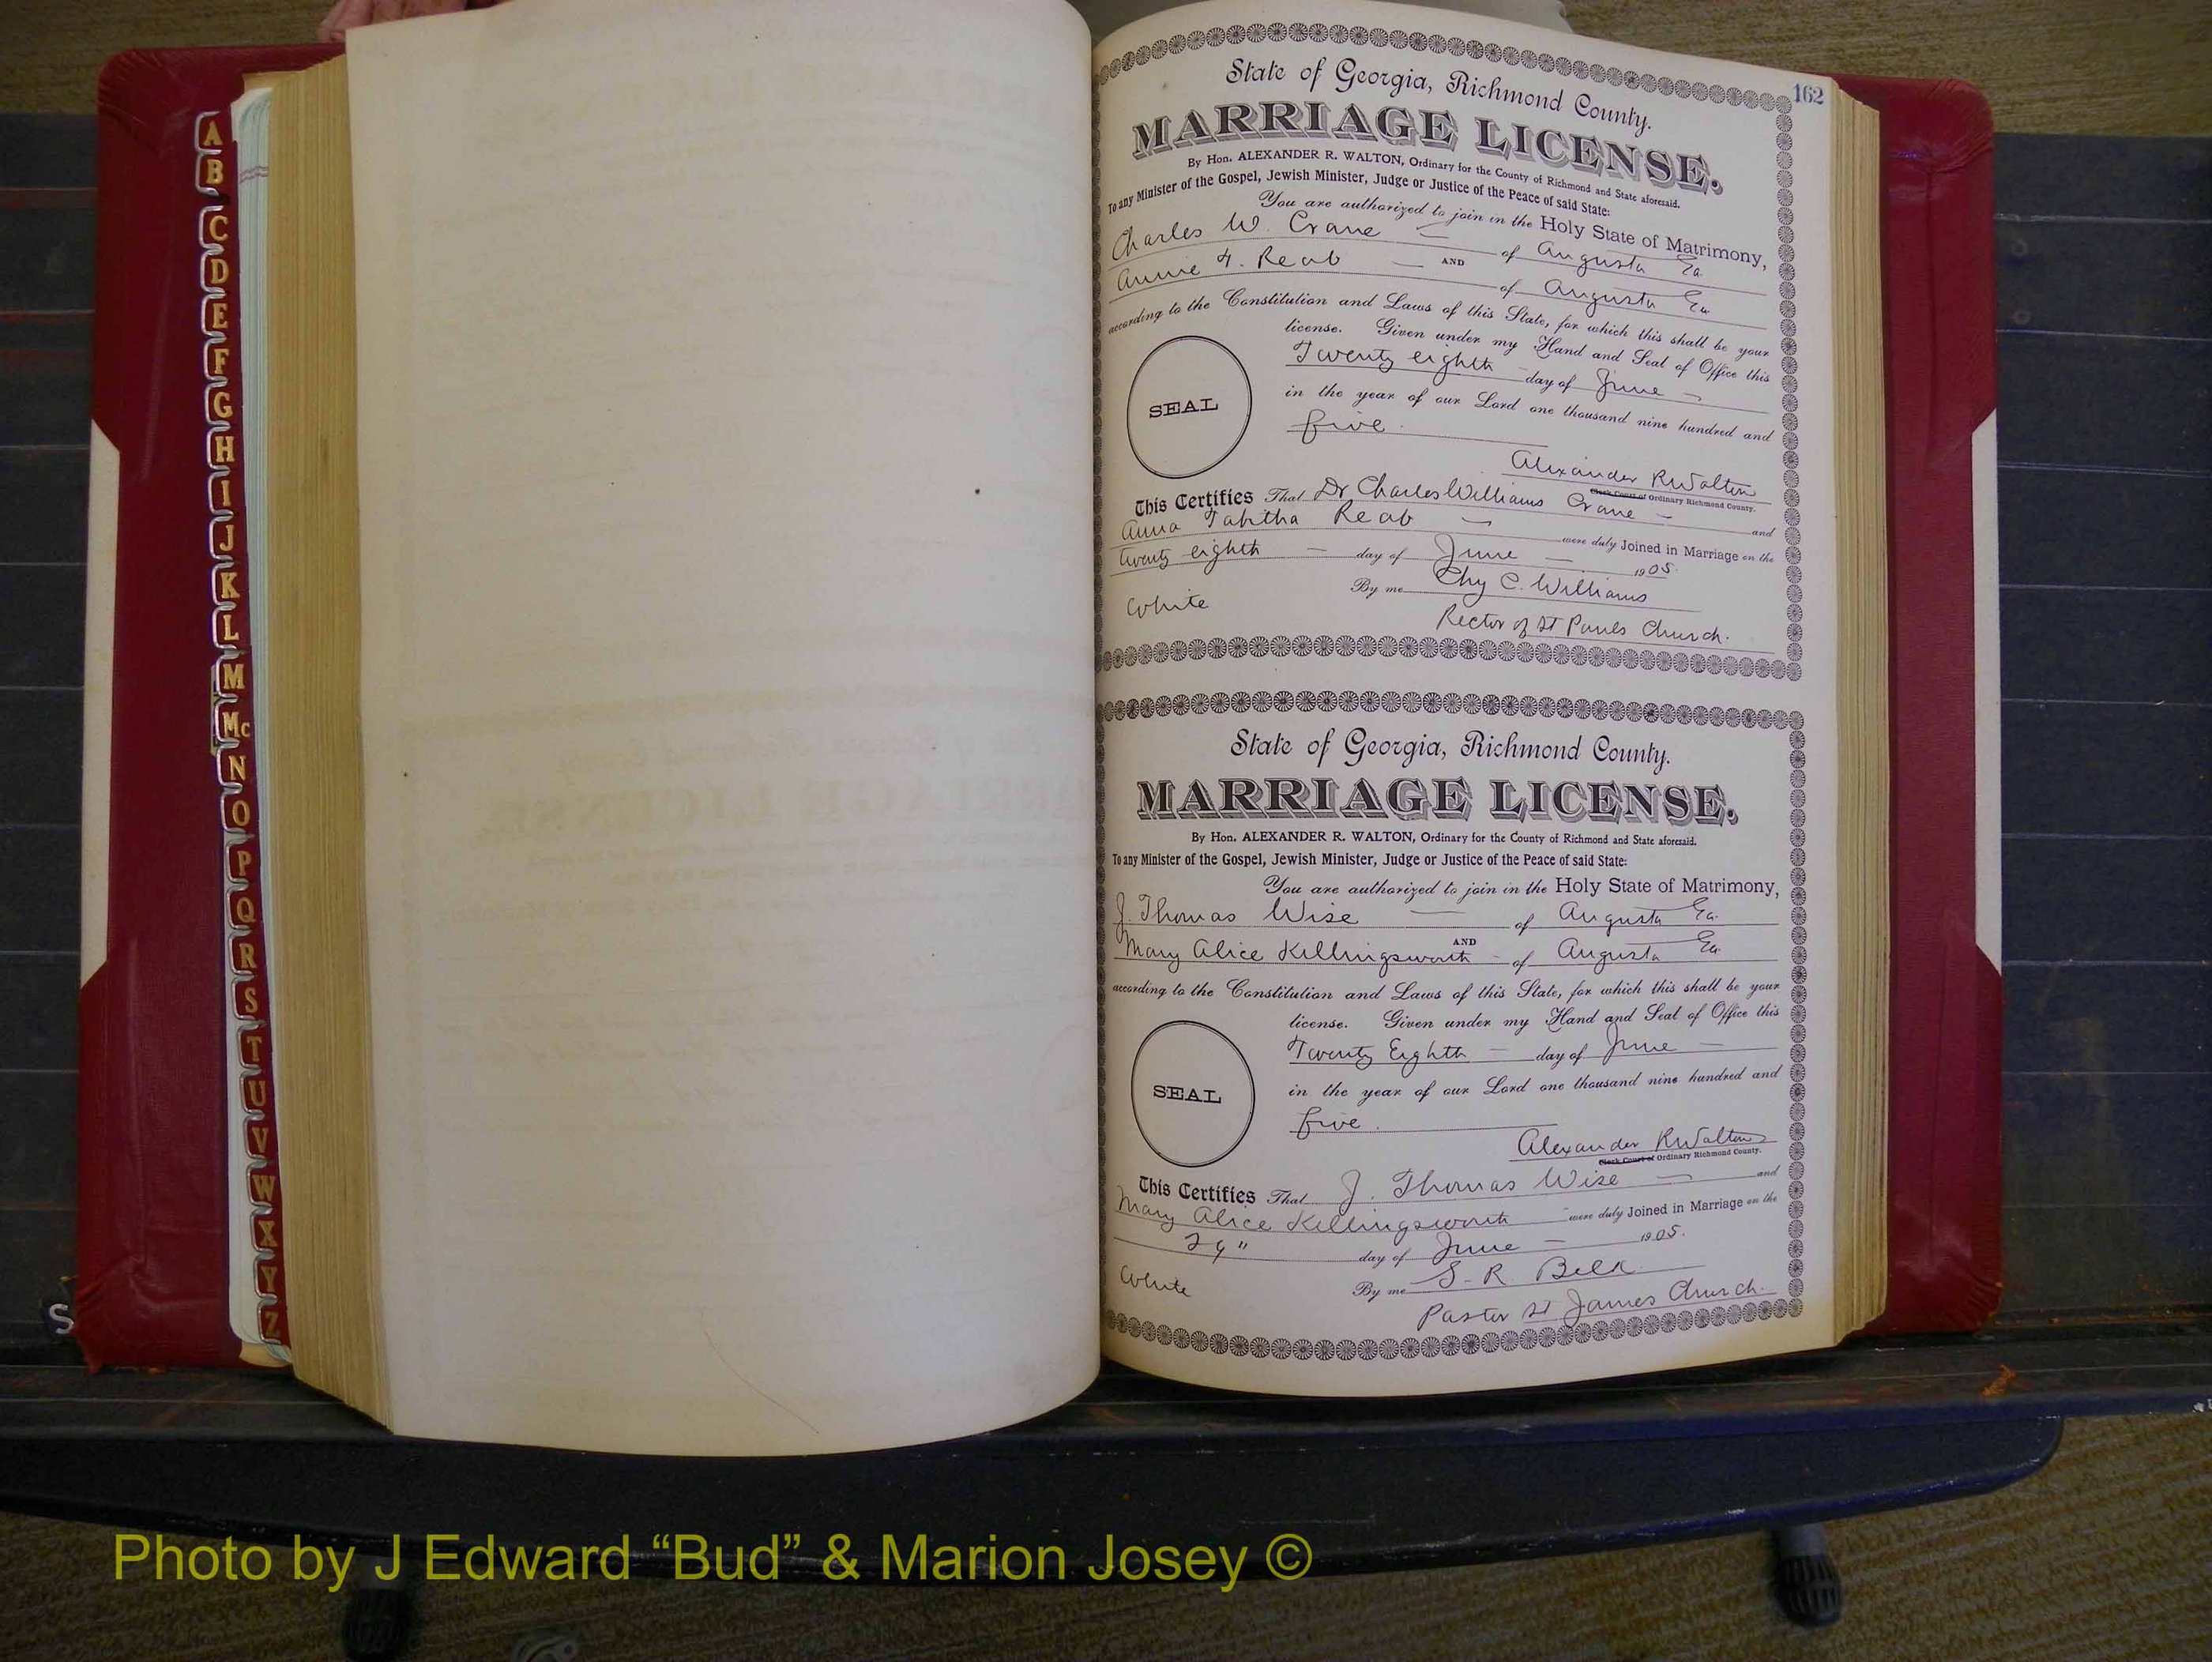 A
B
C
D
E
F
G
H
I
J
K
L
M
Mc
N
O
P
Q
R
S
T
U
V
W
X
Y
Z
S
162
State of Georgia, Richmond County.
MARRIAGE LICENSE.
By Hon. ALEXANDER R. WALTON, Ordinary for the County of Richmond and State aforesaid.
To any Minister of the Gospel, Jewish Minister, Judge or Justice of the Peace of said State:
You are authorized to join in the Holy State of Matrimony,
Charles W. Crane of Augusta Ga.
AND
Annie T. Reab of Augusta Ga
according to the Constitution and Laws of this State, for which this shall be your
license. Given under my Hand and Seal of Office this
Twenty eighth day of June
in the year of our Lord one thousand nine hundred and
five.
SEAL
Alexander R Walton
Clerk Court of Ordinary Richmond County.
This Certifies That Dr Charles Williams Crane and
Anna Tabitha Reab were duly Joined in Marriage on the
twenty eighth day of June 1905.
By me Chy C. Williams
White
Rector of St Pauls Church.
State of Georgia, Richmond County.
MARRIAGE LICENSE.
By Hon. ALEXANDER R. WALTON, Ordinary for the County of Richmond and State aforesaid.
To any Minister of the Gospel, Jewish Minister, Judge or Justice of the Peace of said State:
You are authorized to join in the Holy State of Matrimony,
J. Thomas Wise of Augusta Ga.
AND
Mary Alice Killingsworth of Augusta Ga
according to the Constitution and Laws of this State, for which this shall be your
license. Given under my Hand and Seal of Office this
Twenty Eighth day of June
in the year of our Lord one thousand nine hundred and
five.
SEAL
Alexander R Walton
Clerk Court of Ordinary Richmond County.
This Certifies That J. Thomas Wise and
Mary Alice Killingsworth were duly Joined in Marriage on the
29" day of June 1905.
By me S. R. Belk
White
Pastor St James Church.
Photo by J Edward “Bud” & Marion Josey ©